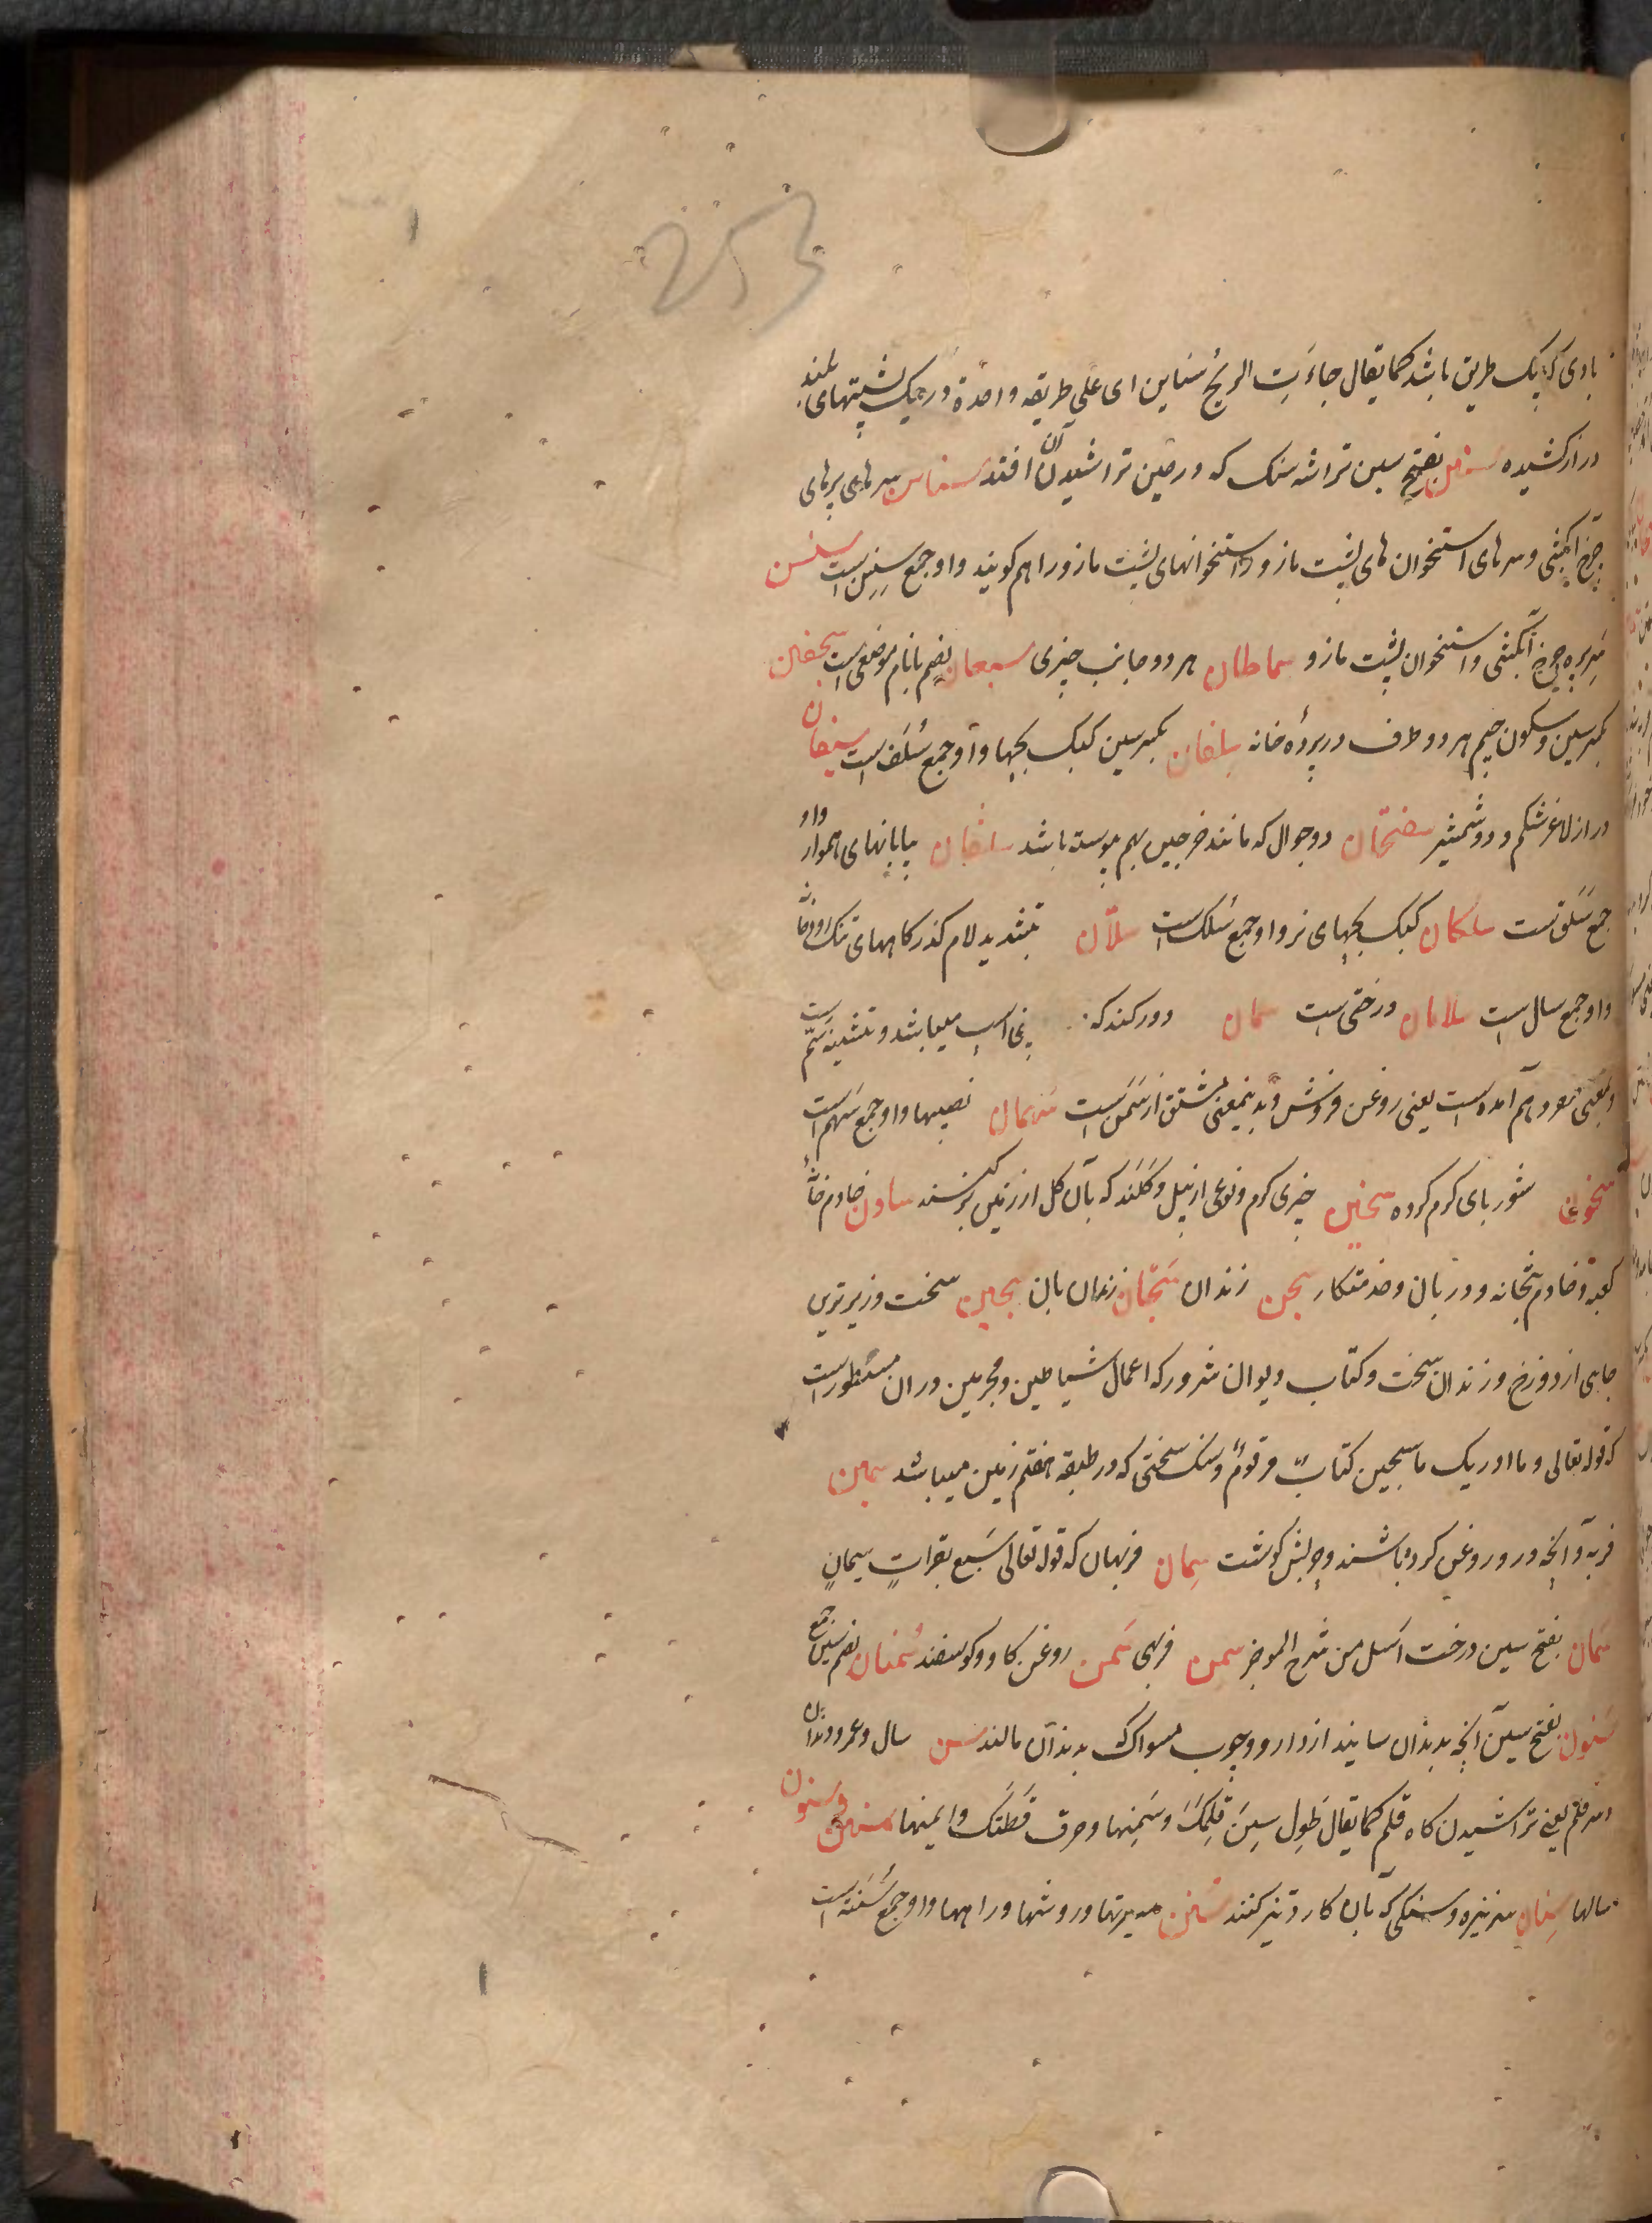 253
بادی که بیک طریق باشد کما یقال جاءَتِ الریحُ سنایِن ای علی طریقه واحدة و ریک پشتهای بلند
دراز کشیده سنین بفتح سین تراشه سنک که در حین تراشیدن آن افتد سناسن سرهای پرهای
چرخ آبکشی و سرهای استخوان های پشت مازو و استخوانهای پشت مازو را هم کویند و او جمع سِنسِن است سنسن
سر پره چرخ آبکشی و استخوان پشت مازو سماطان هر دو جانب چیزی سبعان بضم با نام موضعی است سجفان
بکسر سین و سکون جیم هر دو طرف در پرده خانه سلفان بکسر سین کبک بچها و او جمع سُلَف است سیفان
دراز لاغر شکم و دو شمشیر سفتجان دو جوال که مانند خرجین بهم پیوسته باشد سلقان بیابانهای هموار واو
جمع سَلَق است سلکان کبک بچهای نر و او جمع سُلک است سلّان بتشدید لام کذرکاههای تنک
و او جمع سال است سلامان درختی است سمان دو رک اند که در بینی اسپ میباشد و تثنیه سَمّ است
و بمعنی مفرد هم آمده است یعنی روغن فروش و بدینمعنی مشتق از سَمن است سهمان نصیبها و او جمع سَهم است
سخون شوربای کرم کرده سخین چیزی کرم و نوعی از بیل و کلند که بآن کل از زمین برکنند سادن خادم خانه
کعبه و خادم بتخانه و دربان و خدمتکار سجن زندان سَجّان زندان بان سجین سخت و زیرترین
جای از دوزخ و زندان سخت و کتاب دیوان شرور که اعمال شیاطین و مجرمین در ان مسطور است
که قوله تعالی و ما ادریک ما سجین کتابٌ مرقومٌ و سنک سختی که در طبقه هفتم زمین میباشد سمین
فربه و آنچه در و روغن کرده باشند و چربش کوشت سِمان فربهان که قوله تعالی سَبع بقراتٍ سِمانٍ
سَمان بفتح سین درخت اسل من شرح الموجز سمن فربهی سَمن روغن کاو و کوسفند سُمنان بضم سین جمع
سَنون بفتح سین آنچه بدندان سایند از دارو و چوب مسواک بدندان مالند سن سال و عمر و دندان
و سر قلم یعنی تراشیدن کاه قلم کما یقال طَوِل سِنّ قلمِکَ و سَمِنها و حرف قَطَتک و ایمنها سنین و سنون
سالها سِنان سر نیزه و سنکی که بآن کارد تیز کنند سُنَن سیرتها و روشها و راهها و او جمع سُنَّه است